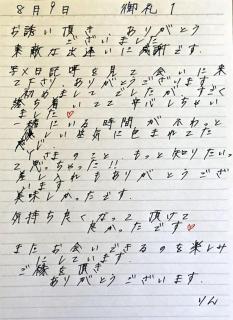 8月9日 御礼 1
お誘い頂き、ありがとう
ございました
素敵な出逢いに感謝です。
写メ日記等を見て会いに来
て下さりありがとうございます
初めましてでしたが、すごく
落ち着いてて 安心しちゃい
ました♡
一緒にいる時間が ふわっと
優しい空気に包まれてた
のこと もっと知りたいっ
て思っちゃった!!
差し入れも ありがとうござい
ます
美味しかったです。
気持ち良くなって 頂けて
良かったです♡
またお会いできるのを楽しみ
にしています。
ご縁を頂き
ありがとうございます。
りん